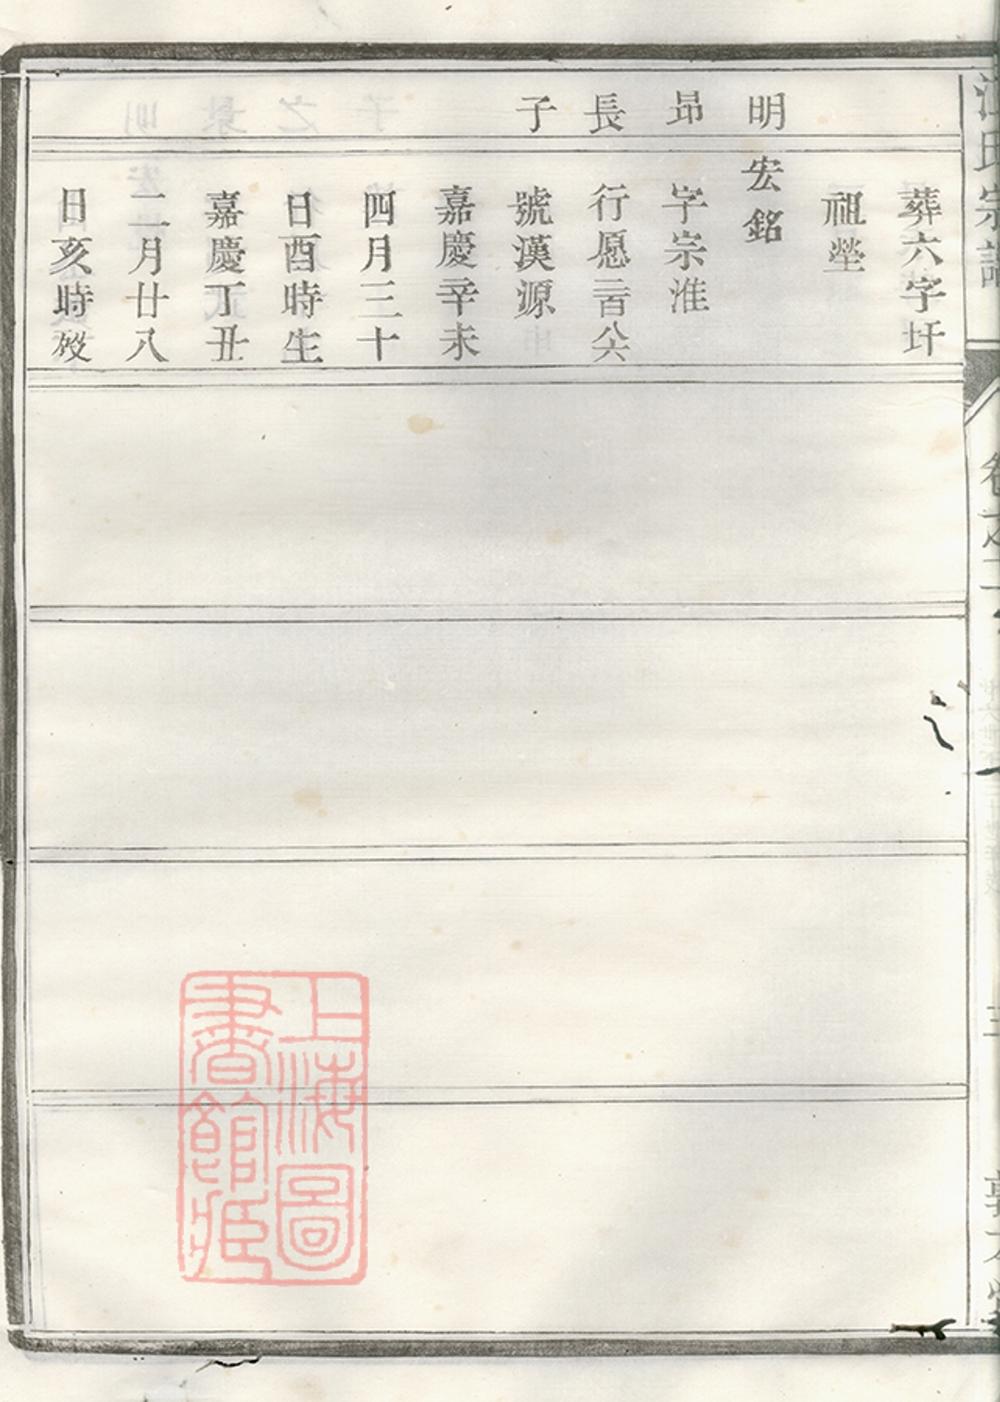 江氏宗譜
葬六字圩
祖塋
明昂長子
宏銘
字宗淮
行愿二百八六
號漢源
嘉慶辛未
四月三十
日酉時生
嘉慶丁丑
二月廿八
日亥時歿
上海圖書館藏